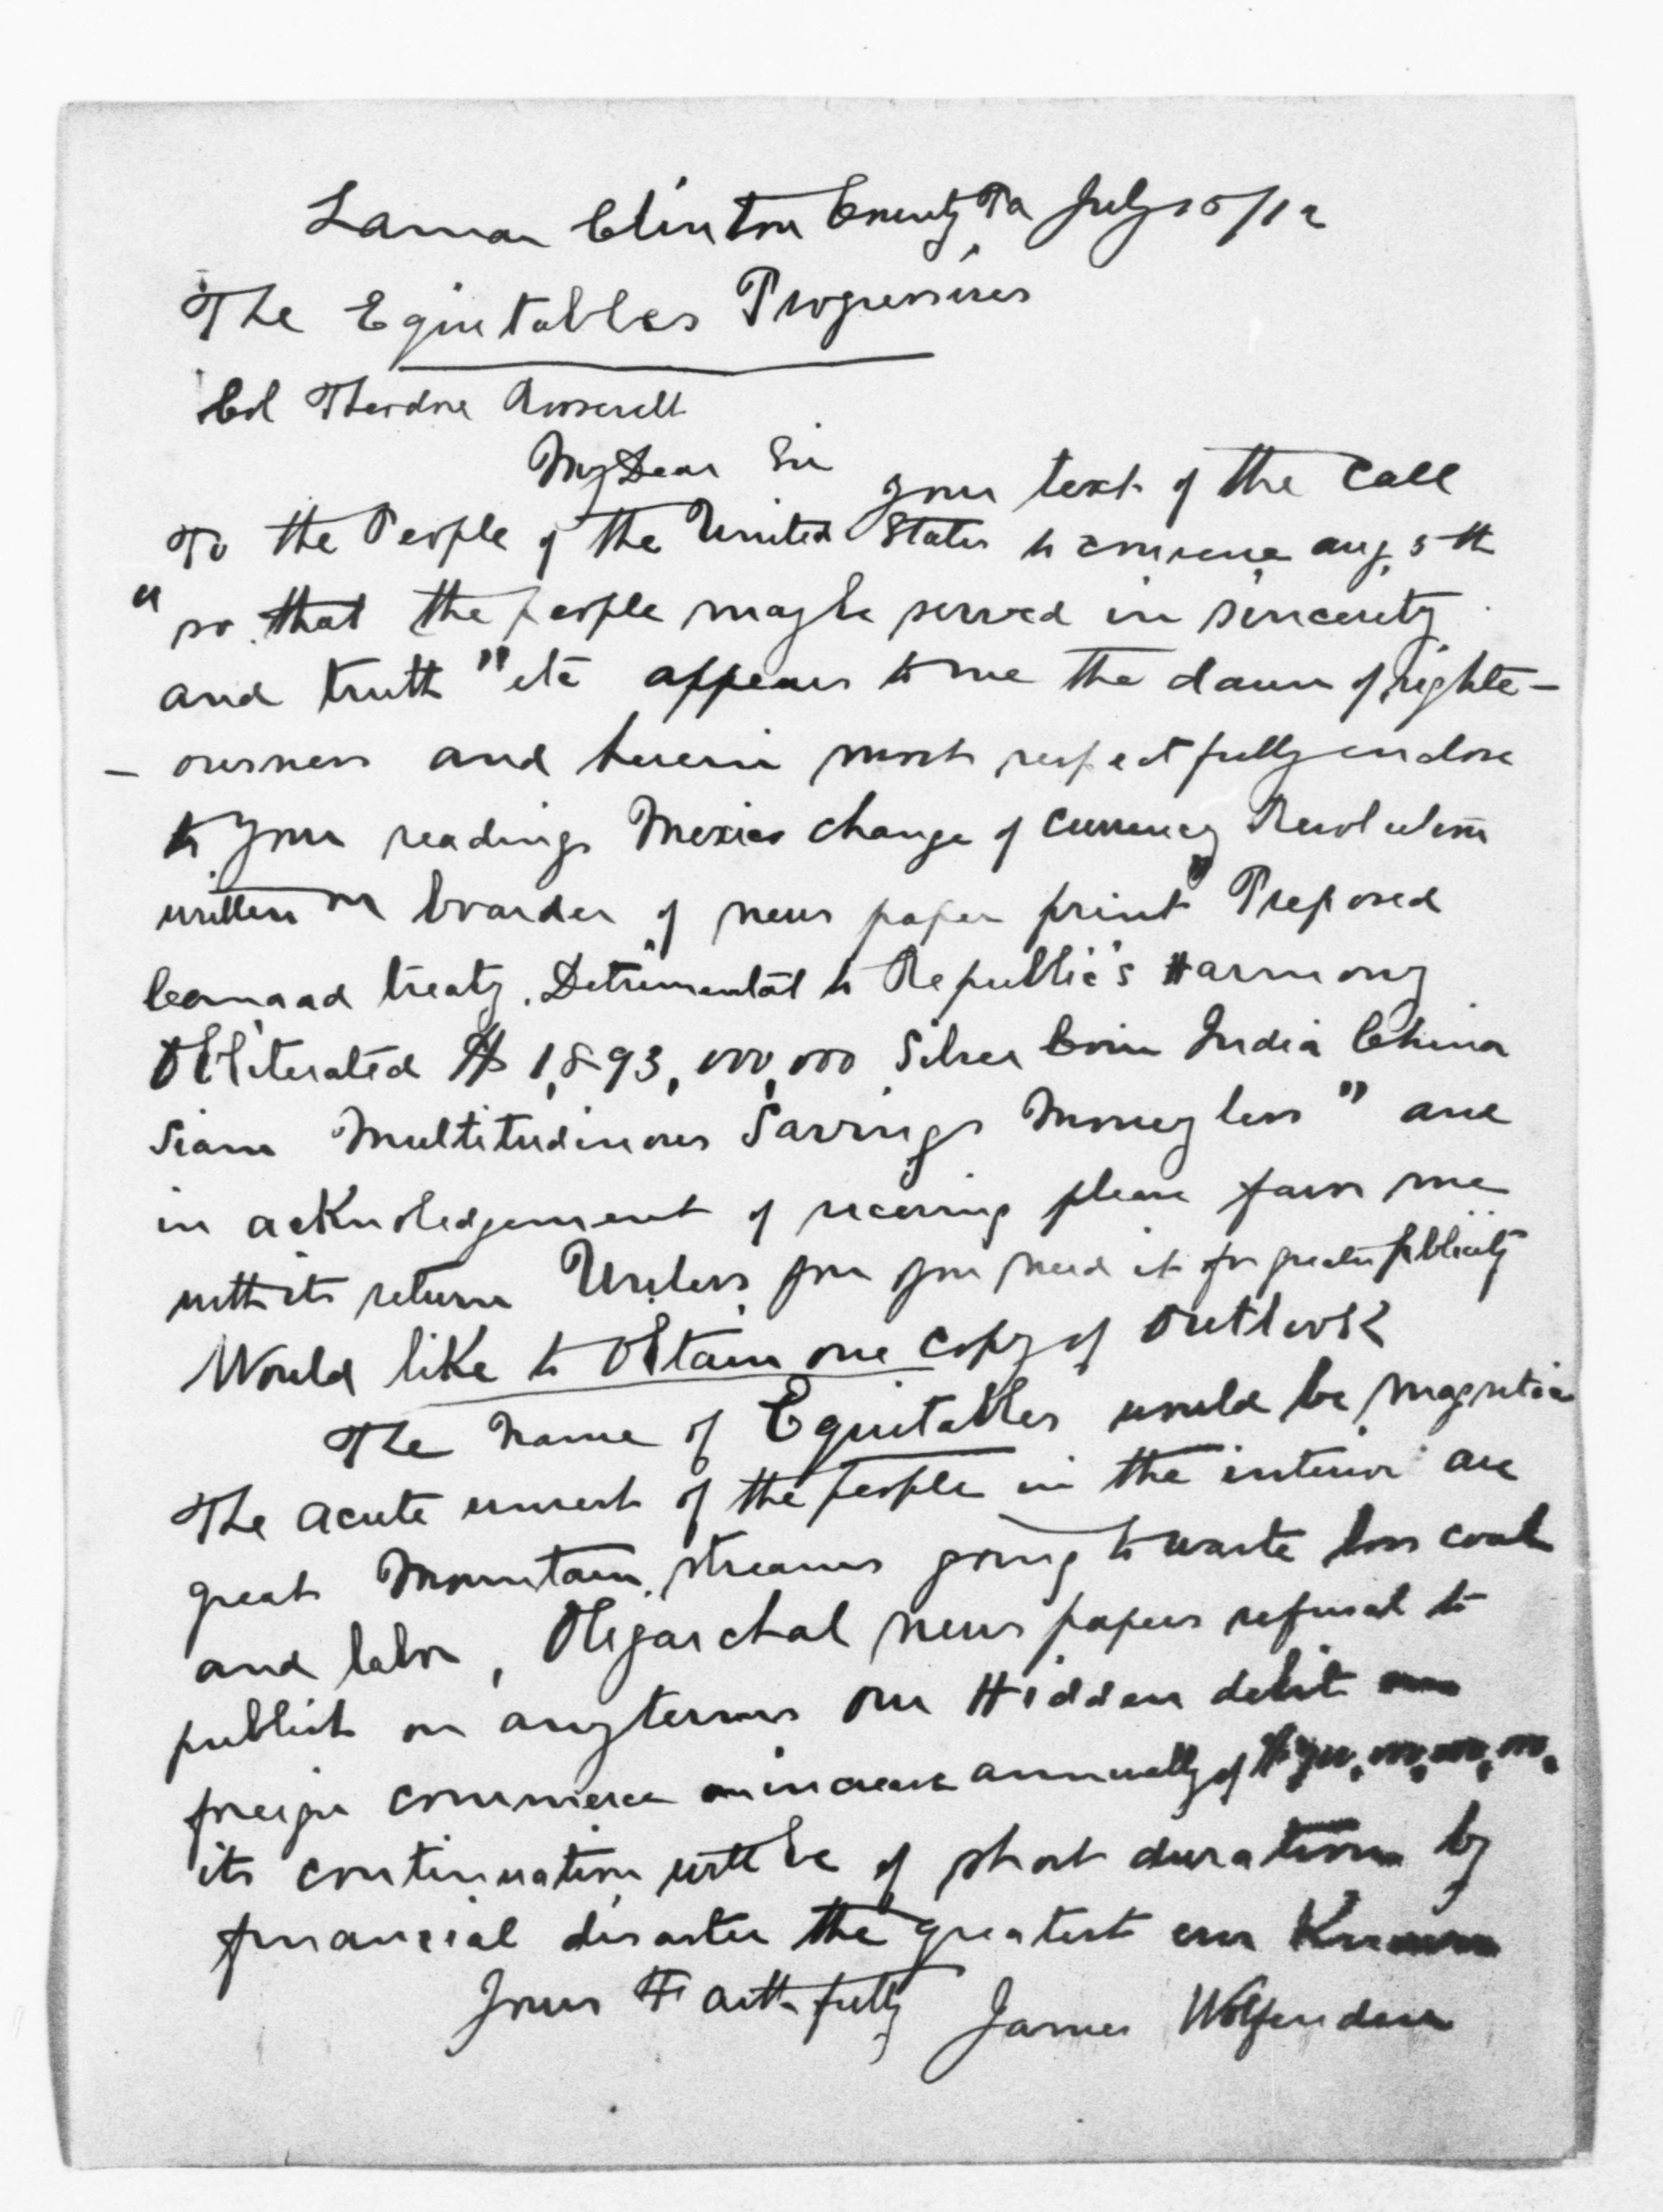 Lamar Clinton County Pa July 15/12
The Equitables Progressives
Col Theodore Roosevelt
My Dear Sir your text of the Call
To the People of the United States to convene aug, 5th
"so that the people may be served in sincerity
and truth" etc appears to me the dawn of righte-
-ousness and herein most respectfully enclose
to your readings Mexico change of currency Revolution
written on boarder of news paper print "Proposed
Cannaad treaty. Detrimental to Republic's Harmony
Obliterated $1,893,000,000 Silver Coin India China
Siam Multitudinous Savings Moneyless" and
in acKnoledgement of receiving please favor me
with its return Unless you you need it for greater publicity
Would liKe to Obtain one copy of OutlooK
The Name of Equitables would be magnetic
The acute unrest of the people in the interior are
great Mountain streams going to waste loss coal
and labor, Oligarchal news papers refusal to
publish on any terms our Hidden debit
foreign commerce increase annually of
its continuation will be of short duration by
financial disaster the greatest ever Known
Yours Faithfully James Wolfenden